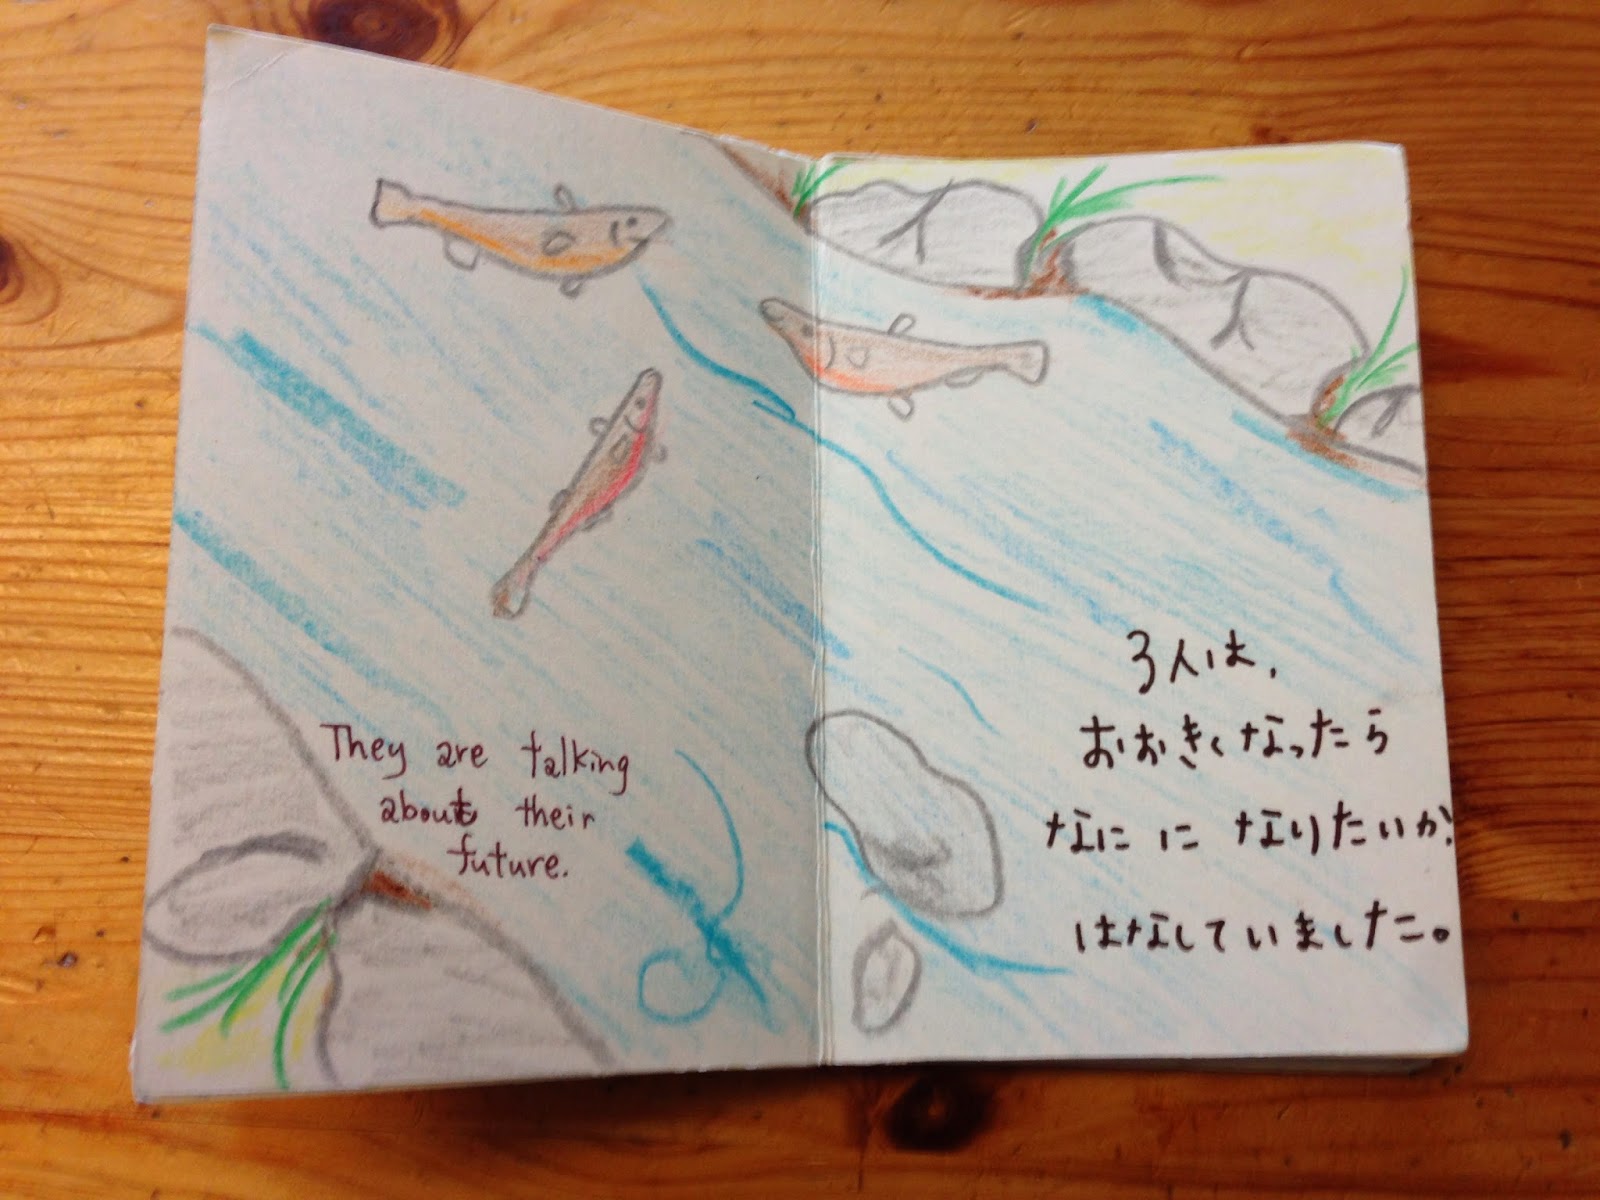 They are talking
about their
future.
3人は、
おおきくなったら
なにに なりたいか
はなしていました。